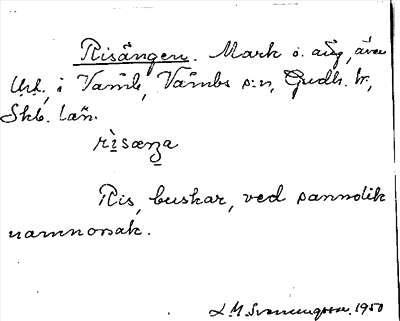 Risängen. Mark o. äng, även
Urk., i Vamb, Vambs s:n, Gudh. hr,
Skb. län.
rìsæŋa
Ris, buskar, ved sannolik
namnorsak.
L. M. Svennungsson. 1950